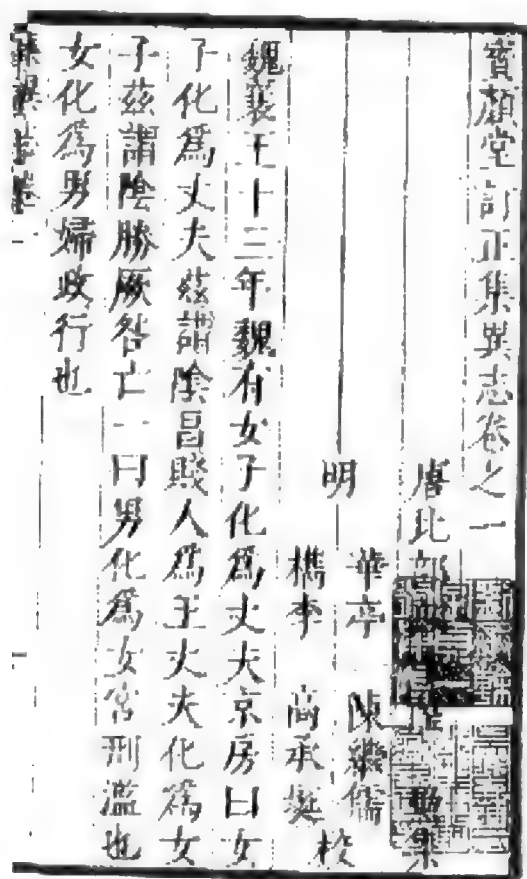 寶顏堂訂正集異志卷之一
唐比部
集
明
華亭 陳繼儒
檇李 高承埏
校
魏襄王十三年魏有女子化爲丈夫京房曰女
子化爲丈夫茲謂陰昌賤人爲王丈夫化爲女
子茲謂陰勝厥咎亡一曰男化爲女宮刑濫也
女化爲男婦政行也